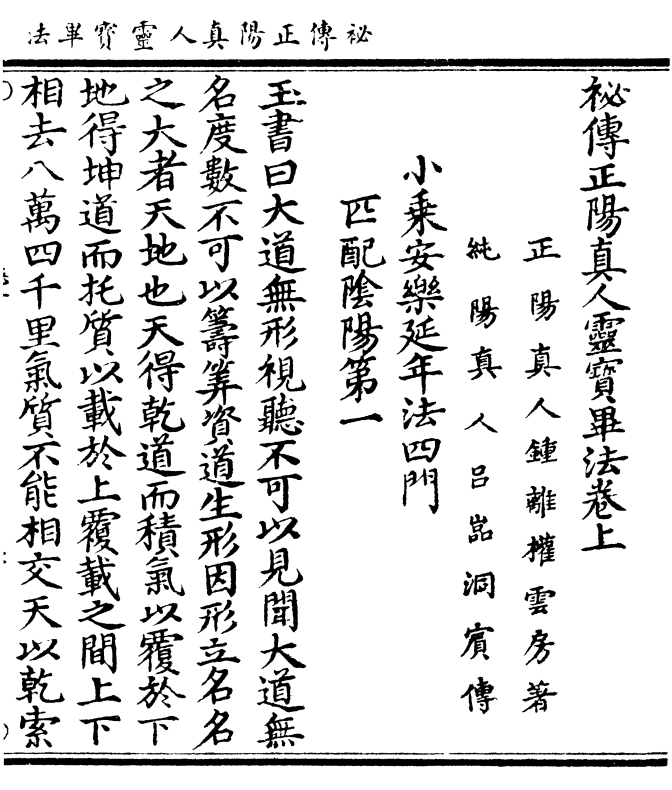 秘傳正陽真人靈寶畢法
秘傳正陽真人靈寶畢法卷上
正陽真人鍾離權雲房著
純陽真人呂嵓洞賓傳
小乘安樂延年法四門
匹配陰陽第一
玉書曰大道無形視聽不可以見聞大道無
名度數不可以籌筭資道生形因形立名名
之大者天地也天得乾道而積氣以覆於下
地得坤道而托質以載於上覆載之間上下
相去八萬四千里氣質不能相交天以乾索